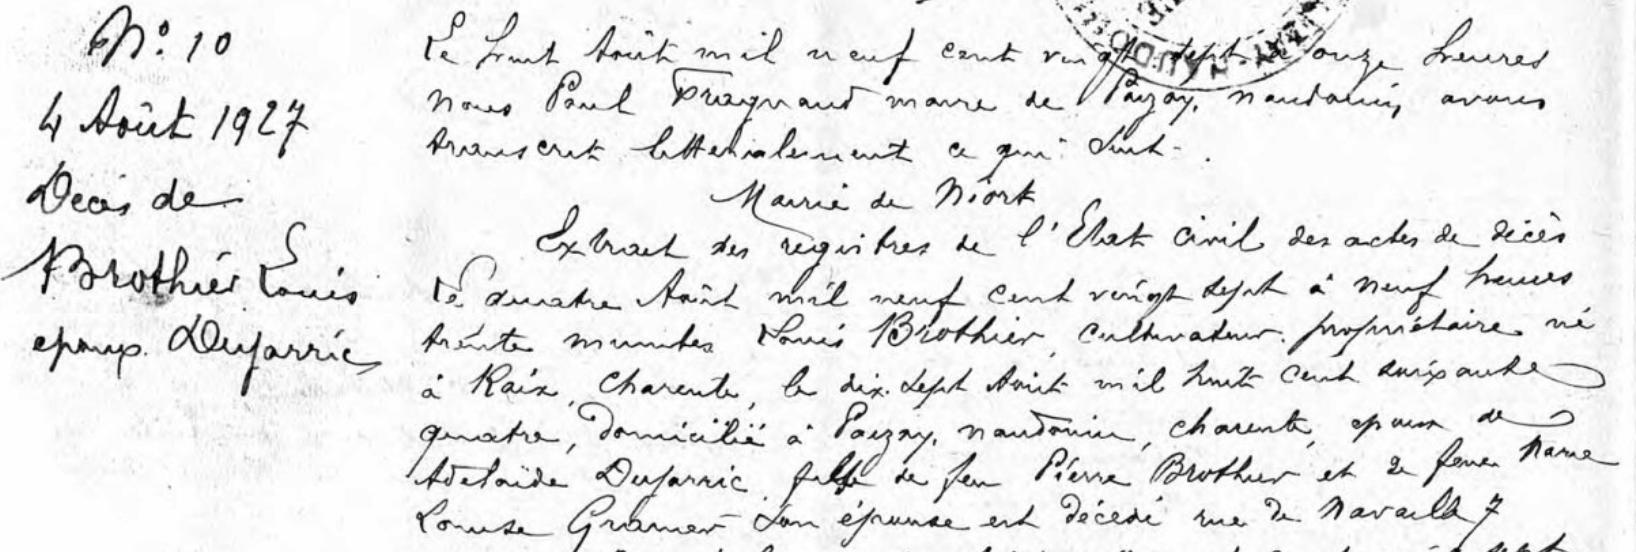 N° 10
4 Août 1927
Décès de
Brothier Louis
epoux Dujarric
Le huit Août mil neuf cent vingt sept à onze heures
nous Paul maire de Paizay, naudouin, avons
transcrit litteralement ce qui suit.
Mairie de Niort
Extrait des registres de l'Etat Civil des actes de décès
Le quatre Août mil neuf cent vingt sept à neuf heures
trente minutes Louis Brothier, cultivateur propriétaire né
à Raix, Charente, le dix sept Août mil huit cent soixante
quatre, domicilié à Paizay, naudouin, charente, epoux de
Adelaïde Dujarric, de feu Pierre Brothier et de feue Marie
Louise son épouse est décédé rue de Navailles 7